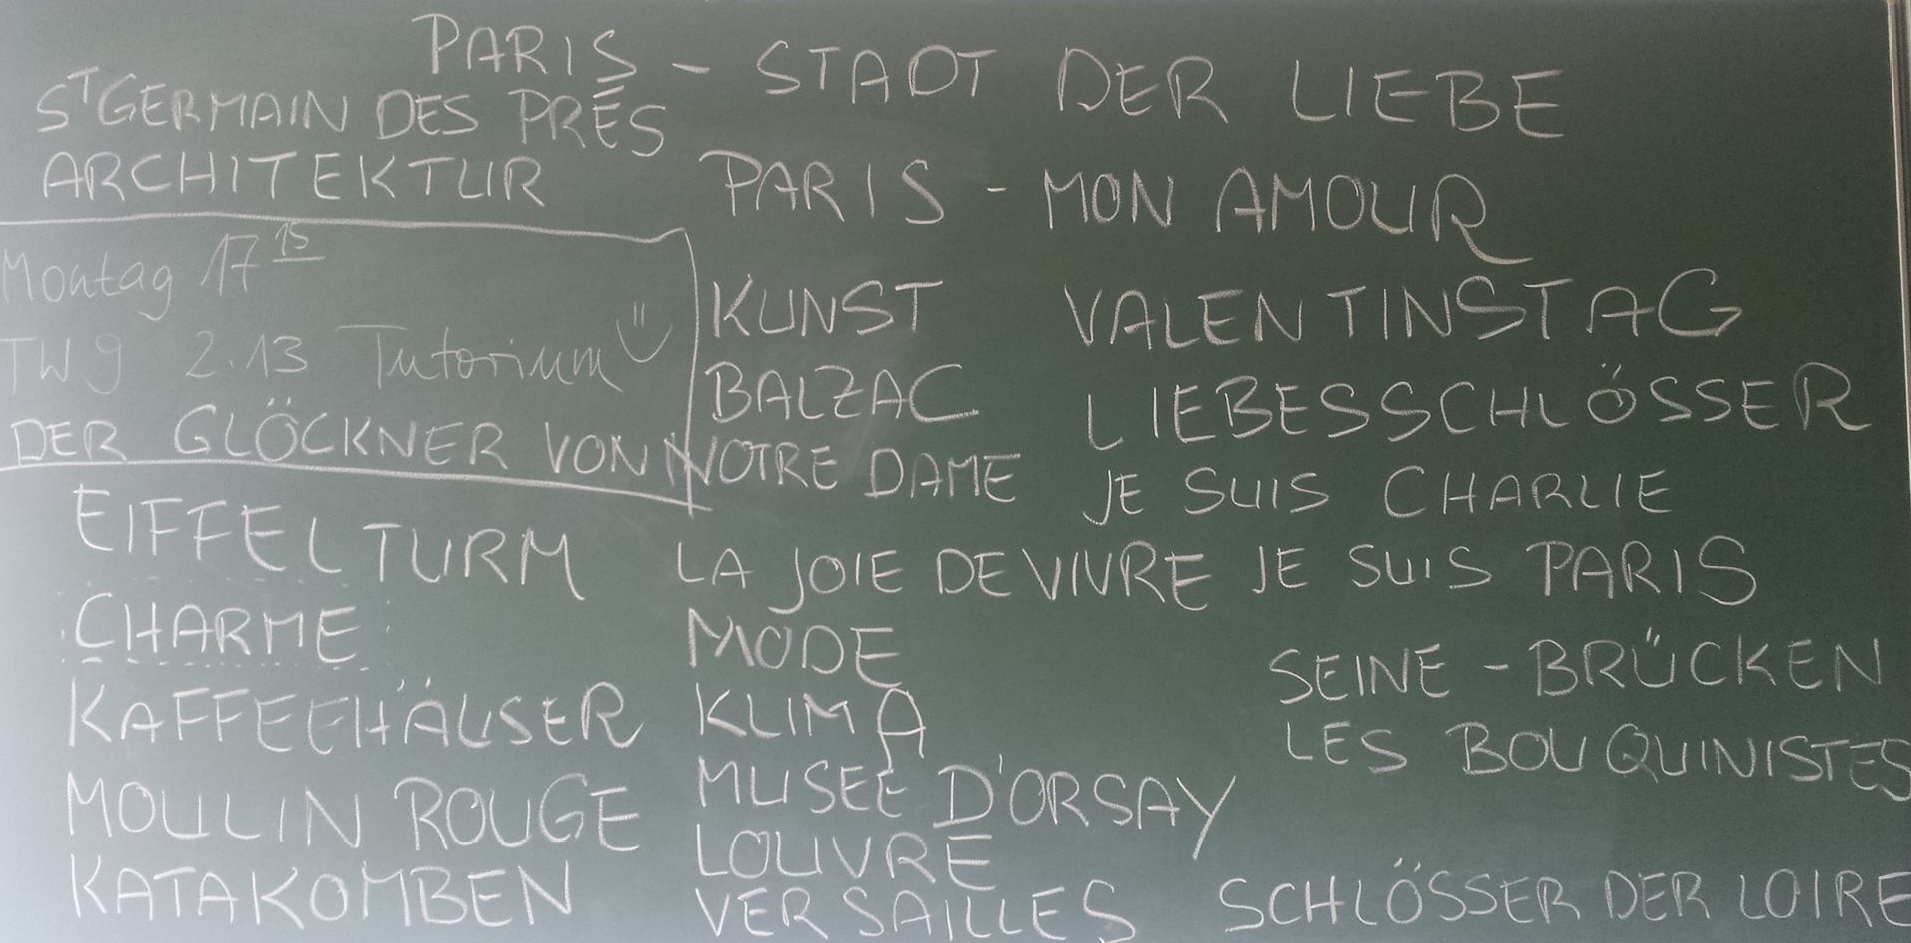 PARIS - STADT DER LIEBE
ST GERMAIN DES PRÉS
ARCHITEKTUR
PARIS - MON AMOUR
Montag 17 15
TW9 2.13 Tutorium
DER GLÖCKNER VON NOTRE DAME
EIFFELTURM
CHARME
KAFFEEHÄUSER
MOULIN ROUGE
KATAKOMBEN
KUNST
BALZAC
LA JOIE DE VIVRE
MODE
KLIMA
MUSEE D'ORSAY
LOUVRE
VERSAILLES
VALENTINSTAG
LIEBESSCHLÖSSER
JE SUIS CHARLIE
JE SUIS PARIS
SEINE - BRÜCKEN
LES BOUQUINISTES
SCHLÖSSER DER LOIRE